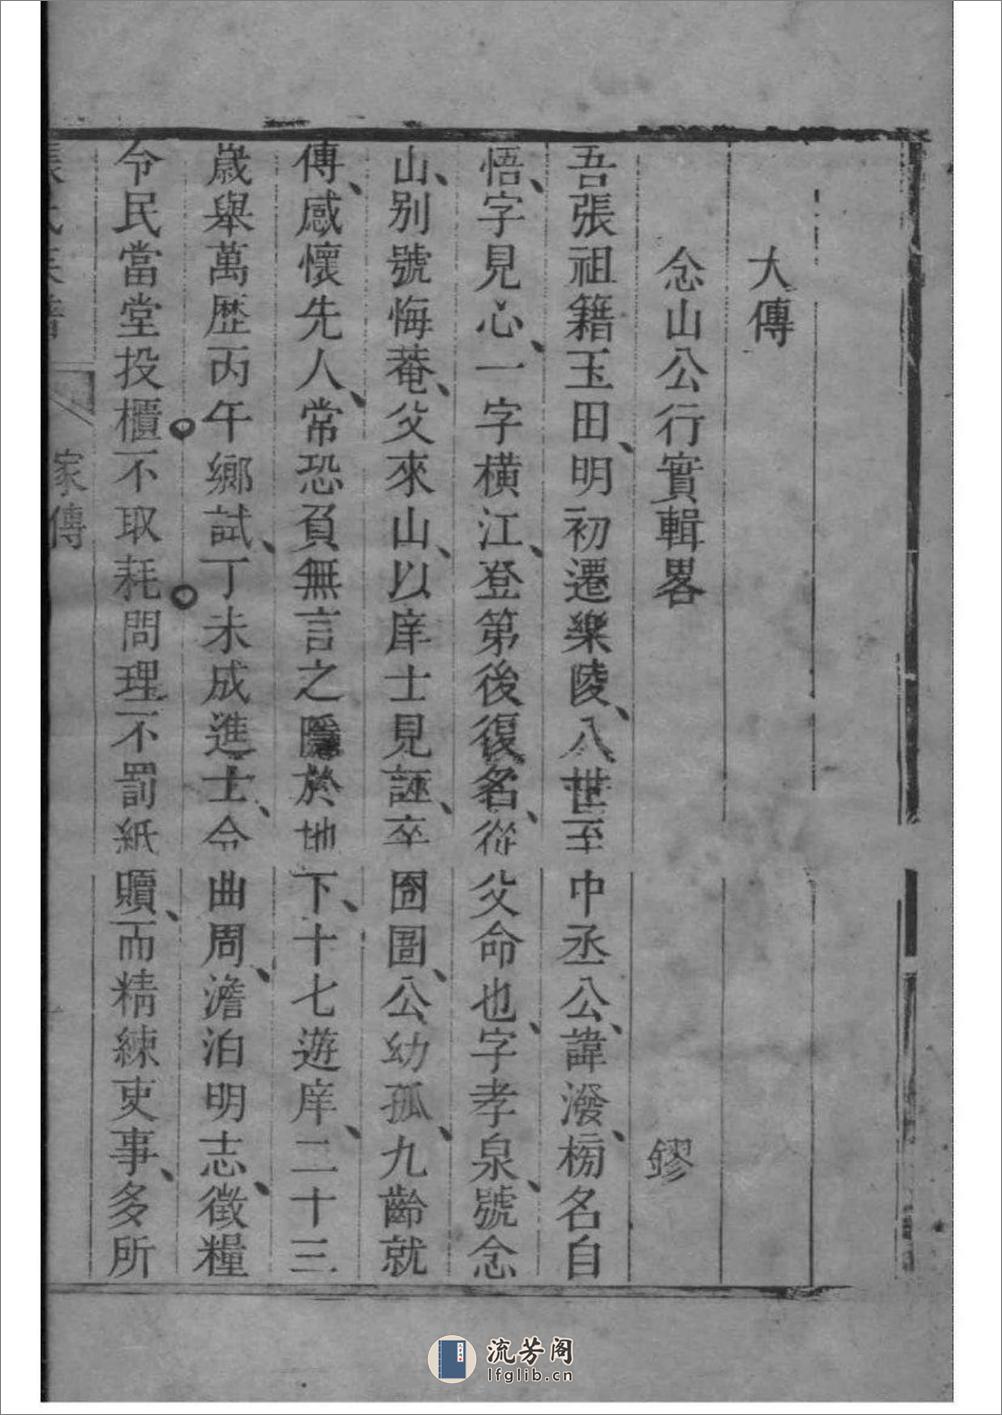 大傳
念山公行實輯畧 鏐
吾張祖籍玉田、明初遷樂陵、八世至中丞公、諱潑、榜名自
悟、字見心、一字橫江、登第後復名、從父命也、字孝泉、號念
山、別號悔菴、父來山、以庠士見誣、卒囹圄、公幼孤、九齡就
傳、感懷先人、常恐負無言之隱於地下、十七遊庠、二十三
歲舉萬歷丙午鄉試、丁未成進士、令曲周、澹泊明志、徵糧
令民當堂投櫃。不取耗。問理不罰紙贖、而精練吏事、多所
張氏族譜 家傳
流芳阁
lfglib.cn